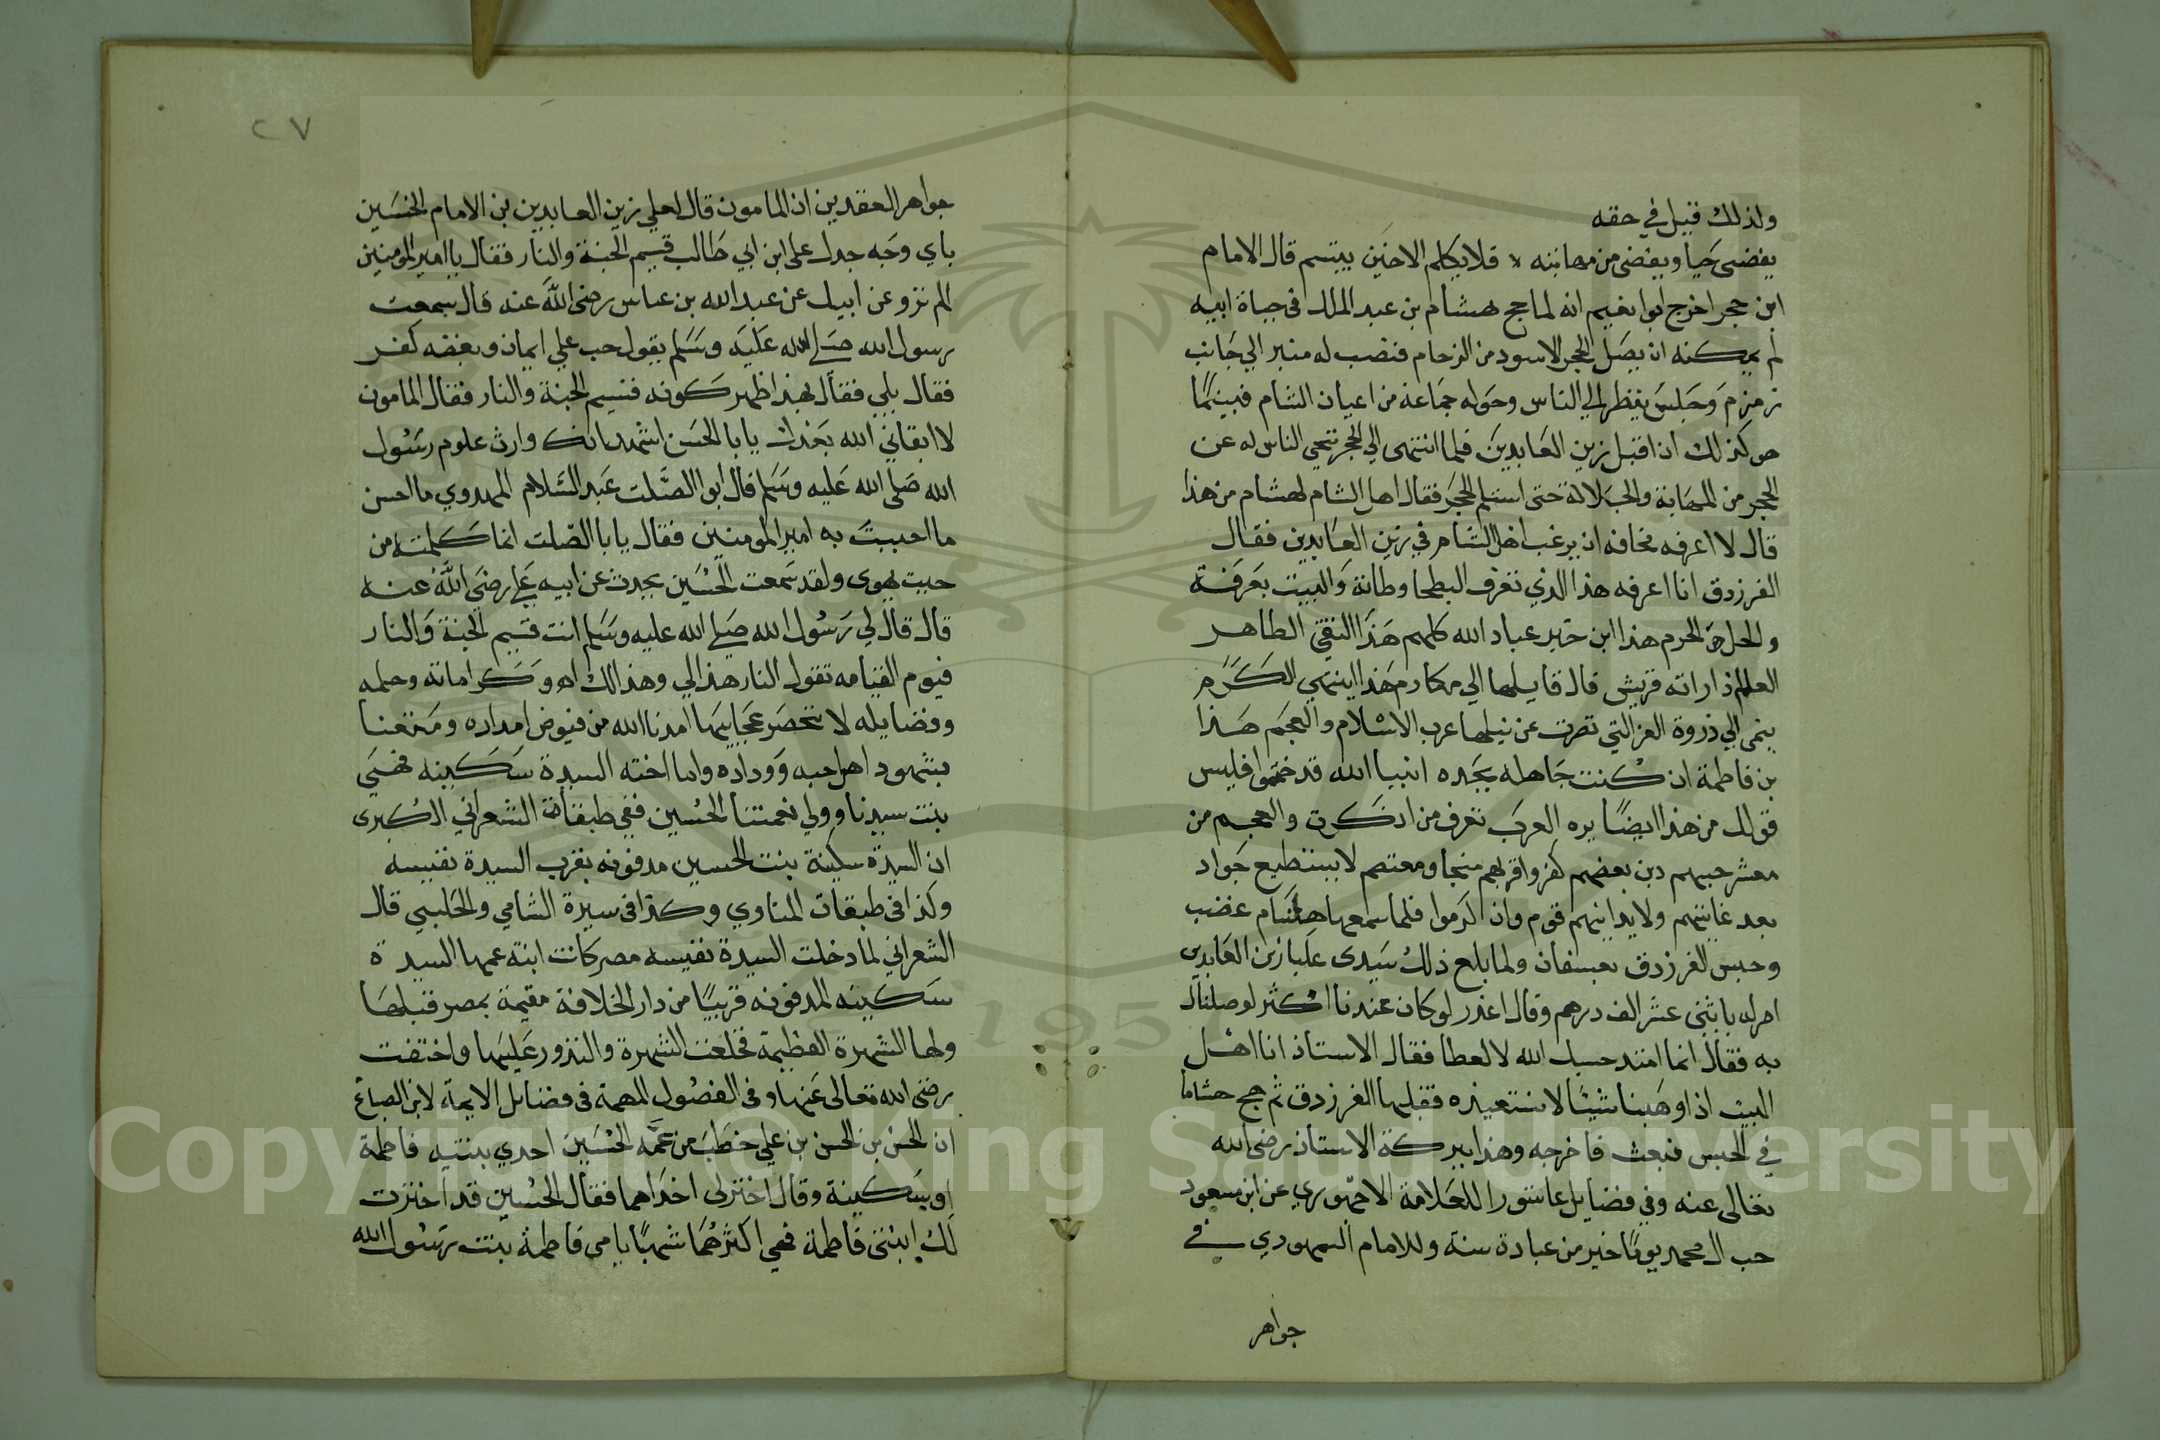 ولذلك قيل في حقه
يغضي حيا ويغضى من مهابته * فلا يكلم الا حين يبتسم قال الامام
ابن حجر اخرج ابوا نعيم انه لما حج هشام بن عبد الملك في حياة ابيه
لم يمكنه ان يصل الحجر الاسود من الزحام فنصب له منبر الي جانب
زمزم وجلس ينظر الي الناس وحوله جماعة من اعيان الشام فبينما
هو كذلك ان اقبل زين العابدين فلما انتهى الي الحجر تنحي الناس له عن
الحجر من المهابة والجلالة حتى استلم الحجر فقال اهل الشام لهشام من هذا
قال لا اعرفه مخافه ان يرغب اهل الشام في زين العابدين فقال
الفرزدق انا اعرفه هذا الذي تعرف البطحا وطاتة والبيت بعرفة
والحل والحرم هذا ابن خير عباد الله كلهم هذا النقي الطاهر
العلم اذا راته قريش قال قايلها الي مكارم هذا ينتهي الكرم
ينمى الي ذروة العز التي قصرت عن نيلها عرب الاسلام والعجم هذا
بن فاطمة ان كنت جاهله بجده انبيا الله قد ختموا فليس
قولك من هذا ايضا يره العرب تعرف من انكرت والعجم من
معشر حبهم دين بغضهم كفر وقربهم منجا ومعتصم لا يستطيع جواد
بعد غايتهم ولا يدانيهم قوم وان اكرموا فلما سمعها هشام غضب
وحبس الفرزدق بعسفان ولما بلغ ذلك سيدى عليا زين العابدين
امر له باثني عشر الف درهم وقال اعذر لو كان عندنا اكثر لوصلناك
به فقال انما امتدحتك لله لا لعطا فقال الاستاذ انا اهل
البيت اذا وهبنا شيئا لا نستعيده فقبلها الفرزدق ثم هجي هشاما
في الحبس فبعث فاخرجه وهذا ببركة الاستاذ رضى الله
تعالى عنه وفي فضايل عاشورا للعلامة الاجهوري عن ابن مسعود
حب ال محمد يوما خير من عبادة سنة وللامام السمهودي في
جواهر
٢٧
جواهر العقدين ان المامون قال لعلي زين العابدين بن الامام الحسين
باي وجه جدك على ابن ابي طالب قسيم الجنة والنار فقال يا امير المومنين
الم تزو عن ابيك عن عبد الله بن عباس رضى الله عنه قال سمعت
رسول الله صلى الله عليه وسلم يقول حب علي ايمان وبغضه كفر
فقال بلي فقال بهذا ظهر كونه قسيم الجنة والنار فقال المامون
لا ابقاني الله بعدك يا با الحسن اشهد انك وارث علوم رسول
الله صلى الله عليه وسلم قال ابوا الصلت عبد السلام المهدوي ما احسن
ما احببت به امير المومنين فقال يا با الصلت انما كلمته من
حيث يهوى ولقد سمعت الحسين يحدث عن ابيه علي رضي الله عنه
قال قال لي رسول الله صلى الله عليه وسلم انت قسيم الجنة والنار
فيوم القيامه تقول النار هذا لي وهذا لك اه وكراماته وحلمه
وفضايله لا تحصر عجايبها امدنا الله من فيوض امداده ومتعنا
بشهود اهل حبه ووداده واما اخته السيدة سكينه فهي
بنت سيدنا وولي نعمتنا الحسين ففي طبقات الشعراني الكبرى
ان السيدة سكينة بنت الحسين مدفونه بقرب السيدة نفيسه
وكذا في طبقات المناوي وكذا في سيرة الشامي والحلبي قال
الشعراني لما دخلت السيدة نفيسه مصر كانت ابنة عمها السيدة
سكينه المدفونه قريبا من دار الخلافة مقيمة بمصر قبلها
ولها الشهرة العظيمة فخلعت الشهرة والنذور عليها واختفت
رضى الله تعالى عنها وفى الفصول المهمة في فضايل الايمة لابن الصباغ
ان الحسن بن الحسن بن علي خطب من عمه الحسين احدي بنتيه فاطمة
او سكينة وقال اختر لى احداهما فقال الحسين قد اخترت
لك ابنتى فاطمة فهي اكثرهما شبها بامي فاطمة بنت رسول الله